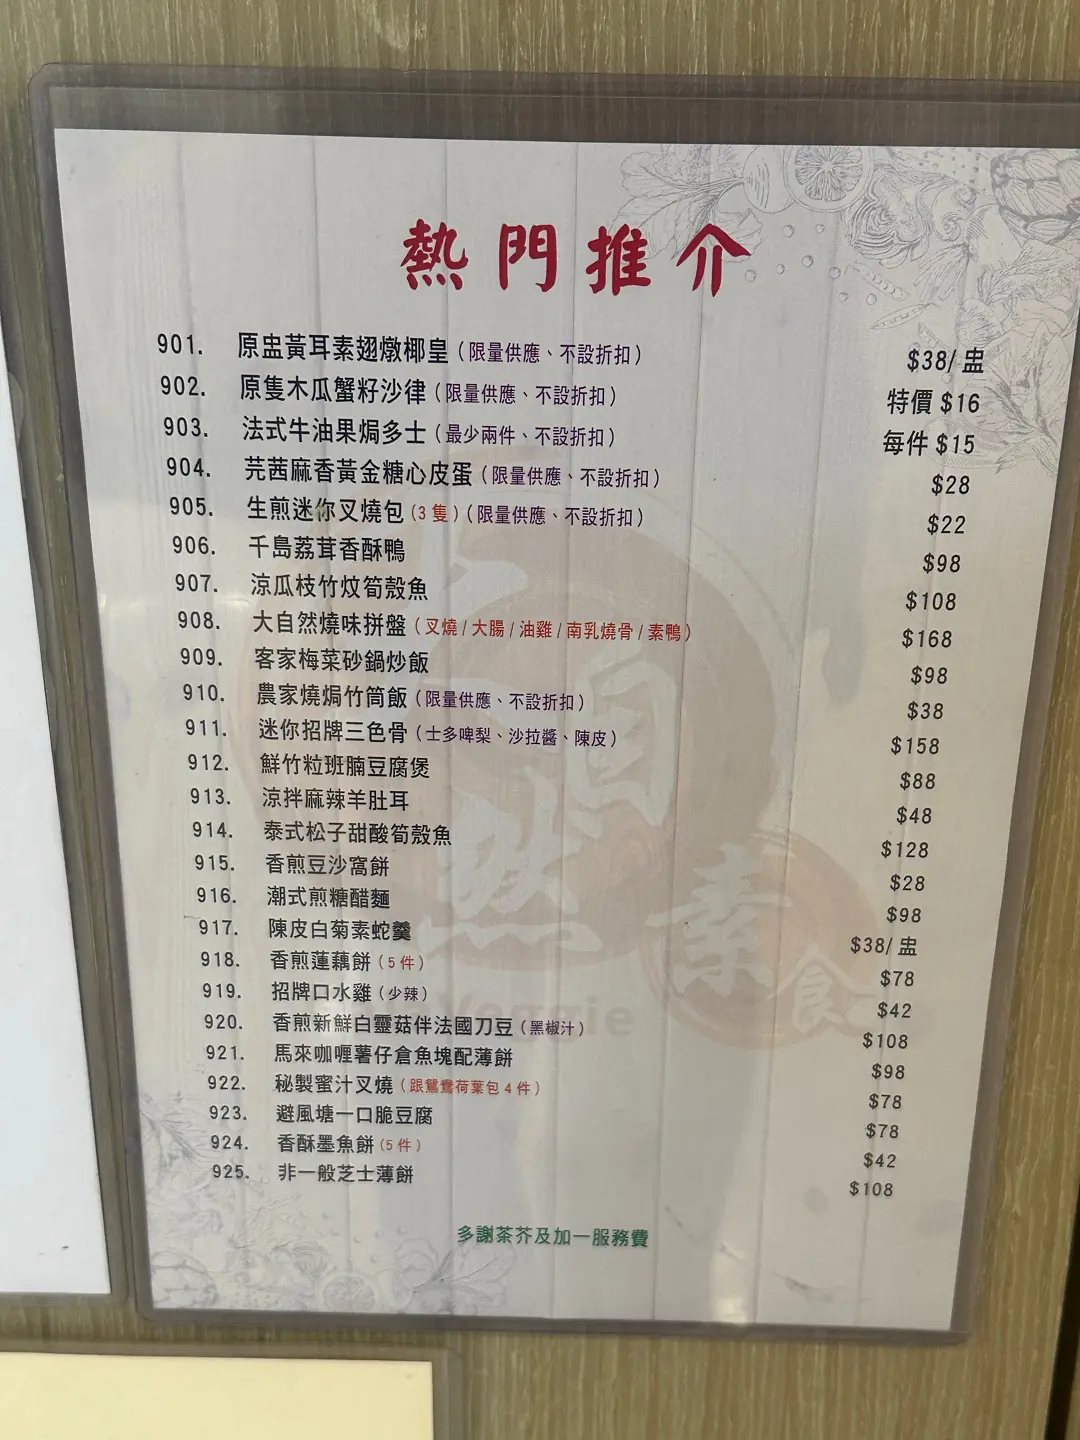 熱門推介
901. 原盅黃耳素翅燉椰皇（限量供應、不設折扣） $38/ 盅
902. 原隻木瓜蟹籽沙律（限量供應、不設折扣） 特價 $16
903. 法式牛油果焗多士（最少兩件、不設折扣） 每件 $15
904. 芫茜麻香黃金糖心皮蛋（限量供應、不設折扣） $28
905. 生煎迷你叉燒包（3 隻）（限量供應、不設折扣） $22
906. 千島荔茸香酥鴨 $98
907. 涼瓜枝竹炆筍殼魚 $108
908. 大自然燒味拼盤（叉燒 / 大腸 / 油雞 / 南乳燒骨 / 素鴨） $168
909. 客家梅菜砂鍋炒飯 $98
910. 農家燒焗竹筒飯（限量供應、不設折扣） $38
911. 迷你招牌三色骨（士多啤梨、沙拉醬、陳皮） $158
912. 鮮竹粒班腩豆腐煲 $88
913. 涼拌麻辣羊肚耳 $48
914. 泰式松子甜酸筍殼魚 $128
915. 香煎豆沙窩餅 $28
916. 潮式煎糖醋麵 $98
917. 陳皮白菊素蛇羹 $38/ 盅
918. 香煎蓮藕餅（5 件） $78
919. 招牌口水雞（少辣） $42
920. 香煎新鮮白靈菇伴法國刀豆（黑椒汁） $108
921. 馬來咖喱薯仔倉魚塊配薄餅 $98
922. 秘製蜜汁叉燒（跟鴛鴦荷葉包 4 件） $78
923. 避風塘一口脆豆腐 $78
924. 香酥墨魚餅（5 件） $42
925. 非一般芝士薄餅 $108
多謝茶芥及加一服務費
自然素食